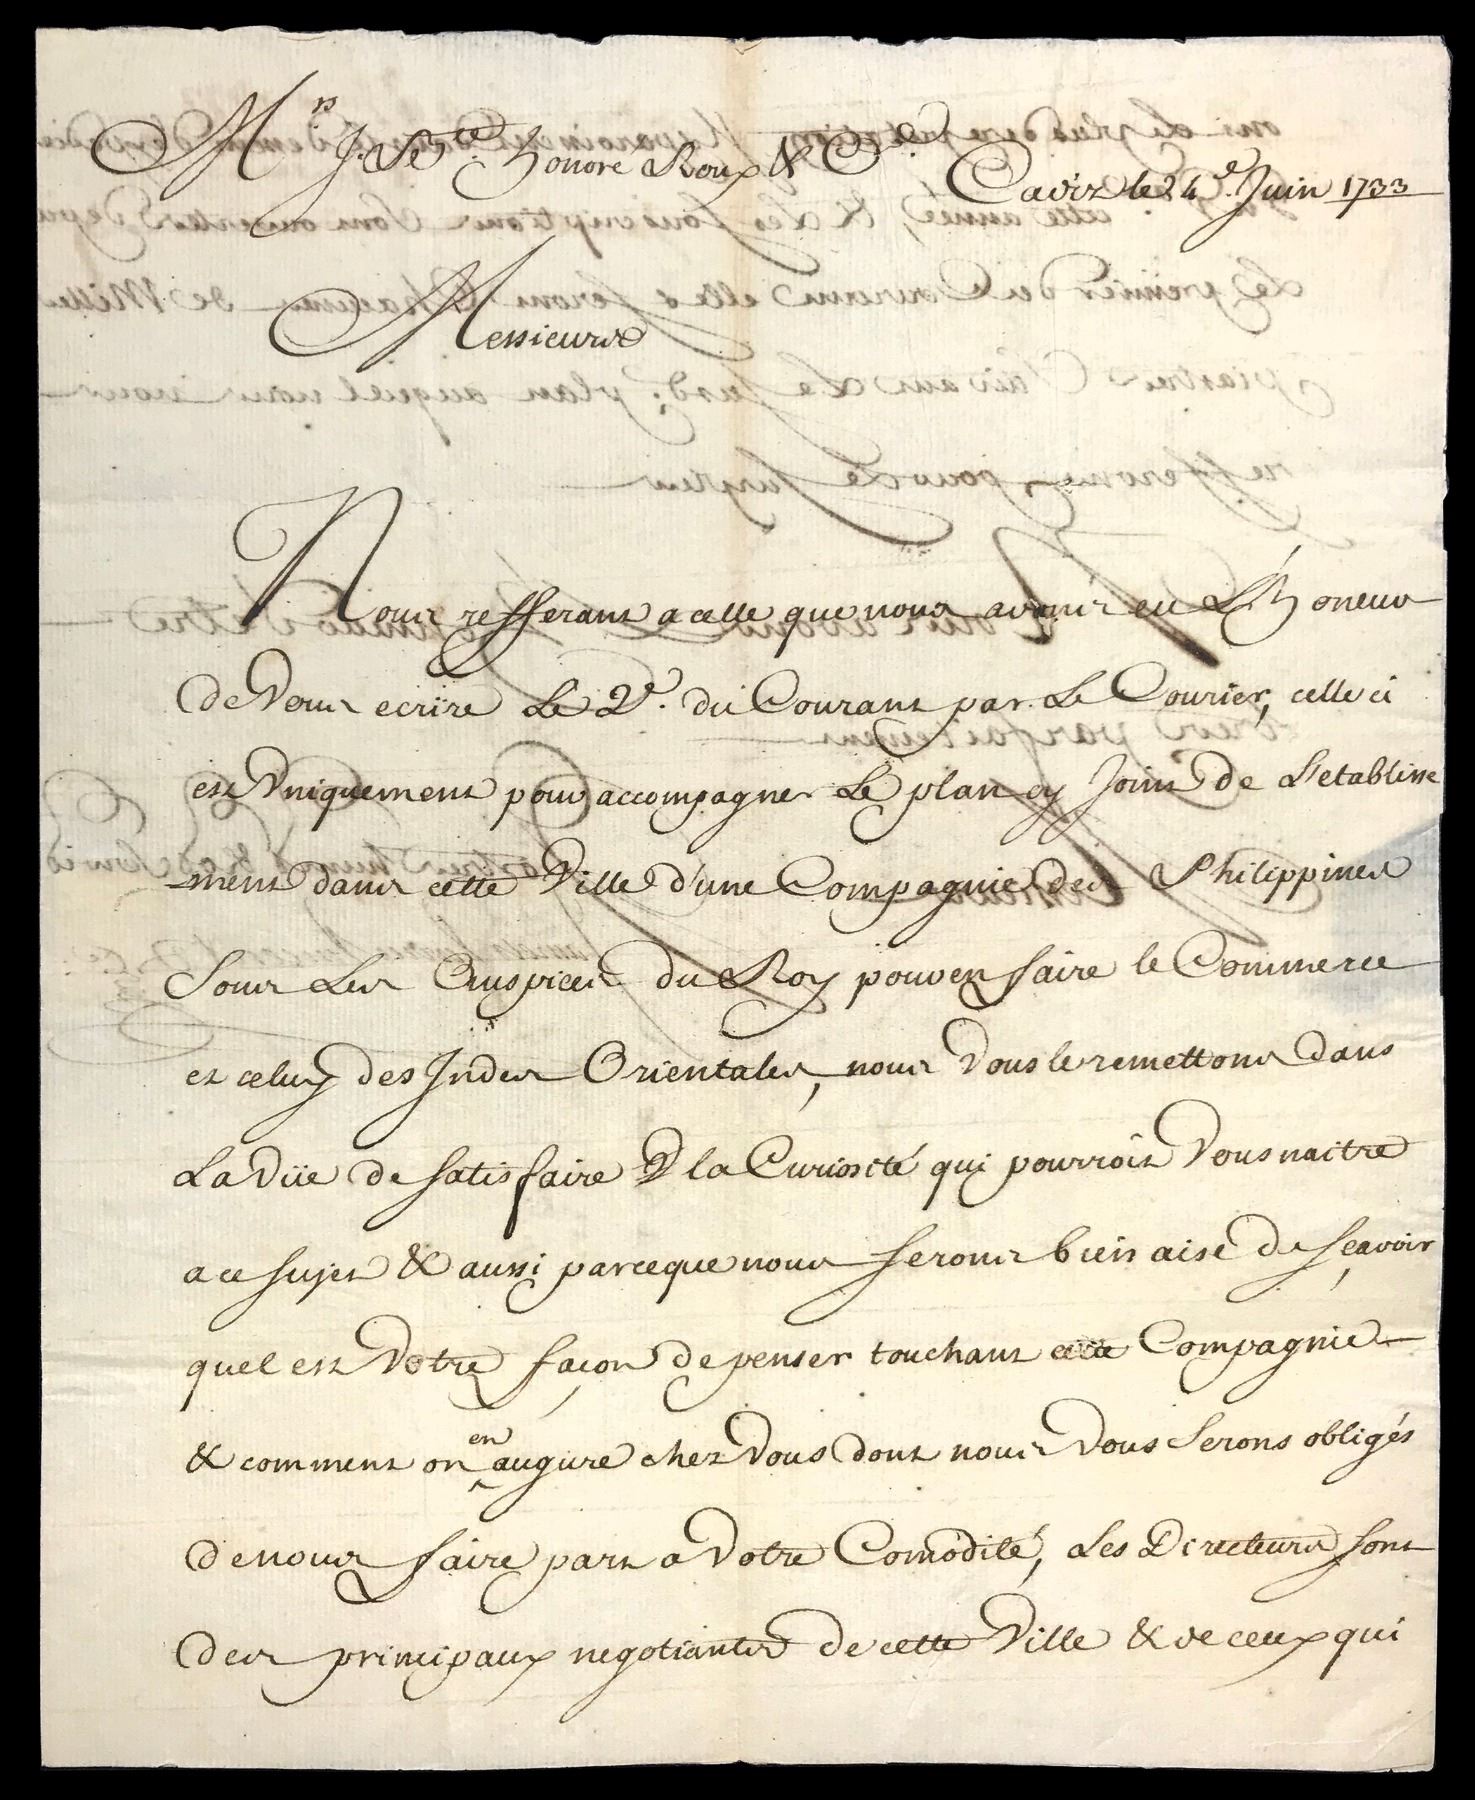 Mrs J. Sce. honoré Roux & Ce.
Cadiz le 24e. Juin 1733
Messieurs
Nous refferant a celle que nous avons eu L'honeur
de Vous ecrire Le 2e. du Courant par Le Courier, celle ci
est Uniquement pour accompagner Le plan cy Joint de L'etablisse
ment dans cette Ville d'une Compagnie des Philippines
Sous Les Auspices du Roy pour en faire le Commerce
et celuy des Indes Orientales, nous Vous le remettons dans
La Vüe de satisfaire la Curiosité qui pourroit Vous naitre
a ce sujet & aussi parceque nous serons bien aise de sçavoir
quel est Votre façon de penser touchant cette Compagnie
& comment on en augure chez Vous dont nous Vous Serons obligés
de nous faire part a Votre Comodité, Les Directeurs sont
des principaux negotiants de cette Ville & de ceux qui